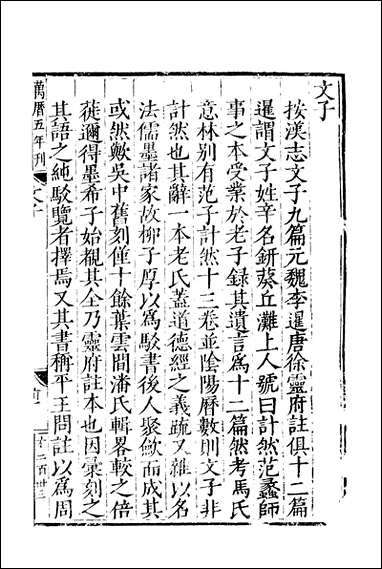 文子
按漢志文子九篇元魏李暹唐徐靈府註俱十二篇
暹謂文子姓辛名鈃葵丘濮上人號曰計然范蠡師
事之本受業於老子錄其遺言爲十二篇然考馬氏
意林別有范子計然十三卷並陰陽曆數則文子非
計然也其辭一本老氏蓋道德經之義疏又雜以名
法儒墨諸家故柳子厚以爲駁書後人聚歛而成其
或然歟吳中舊刻僅十餘葉雲間潘氏輯畧較之倍
蓰邇得墨希子始覩其全乃靈府註本也因彙刻之
其語之純駁覽者擇焉又其書稱平王問註以爲周
萬曆五年刊